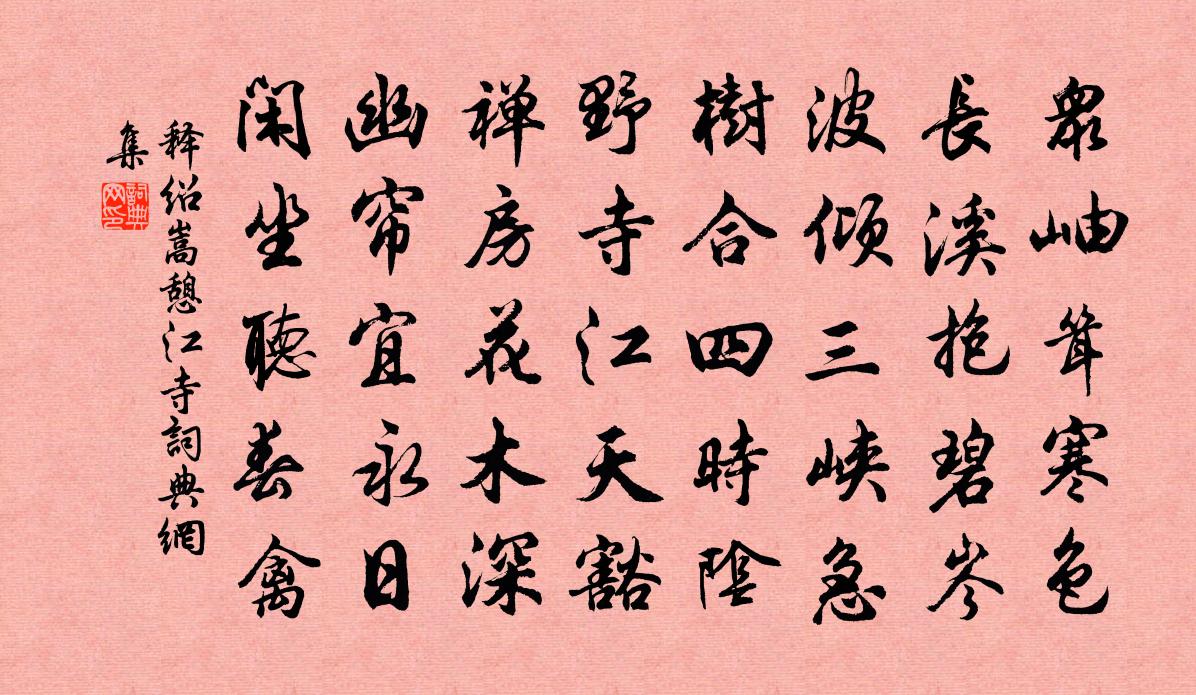 眾岫耸寒色
長溪抱碧岑
波倾三峽急
樹合四時陰
野寺江天豁
禅房花木深
幽帘宜永日
閑坐聽春禽
释绍嵩憩江寺詞典網
集
詞典网印